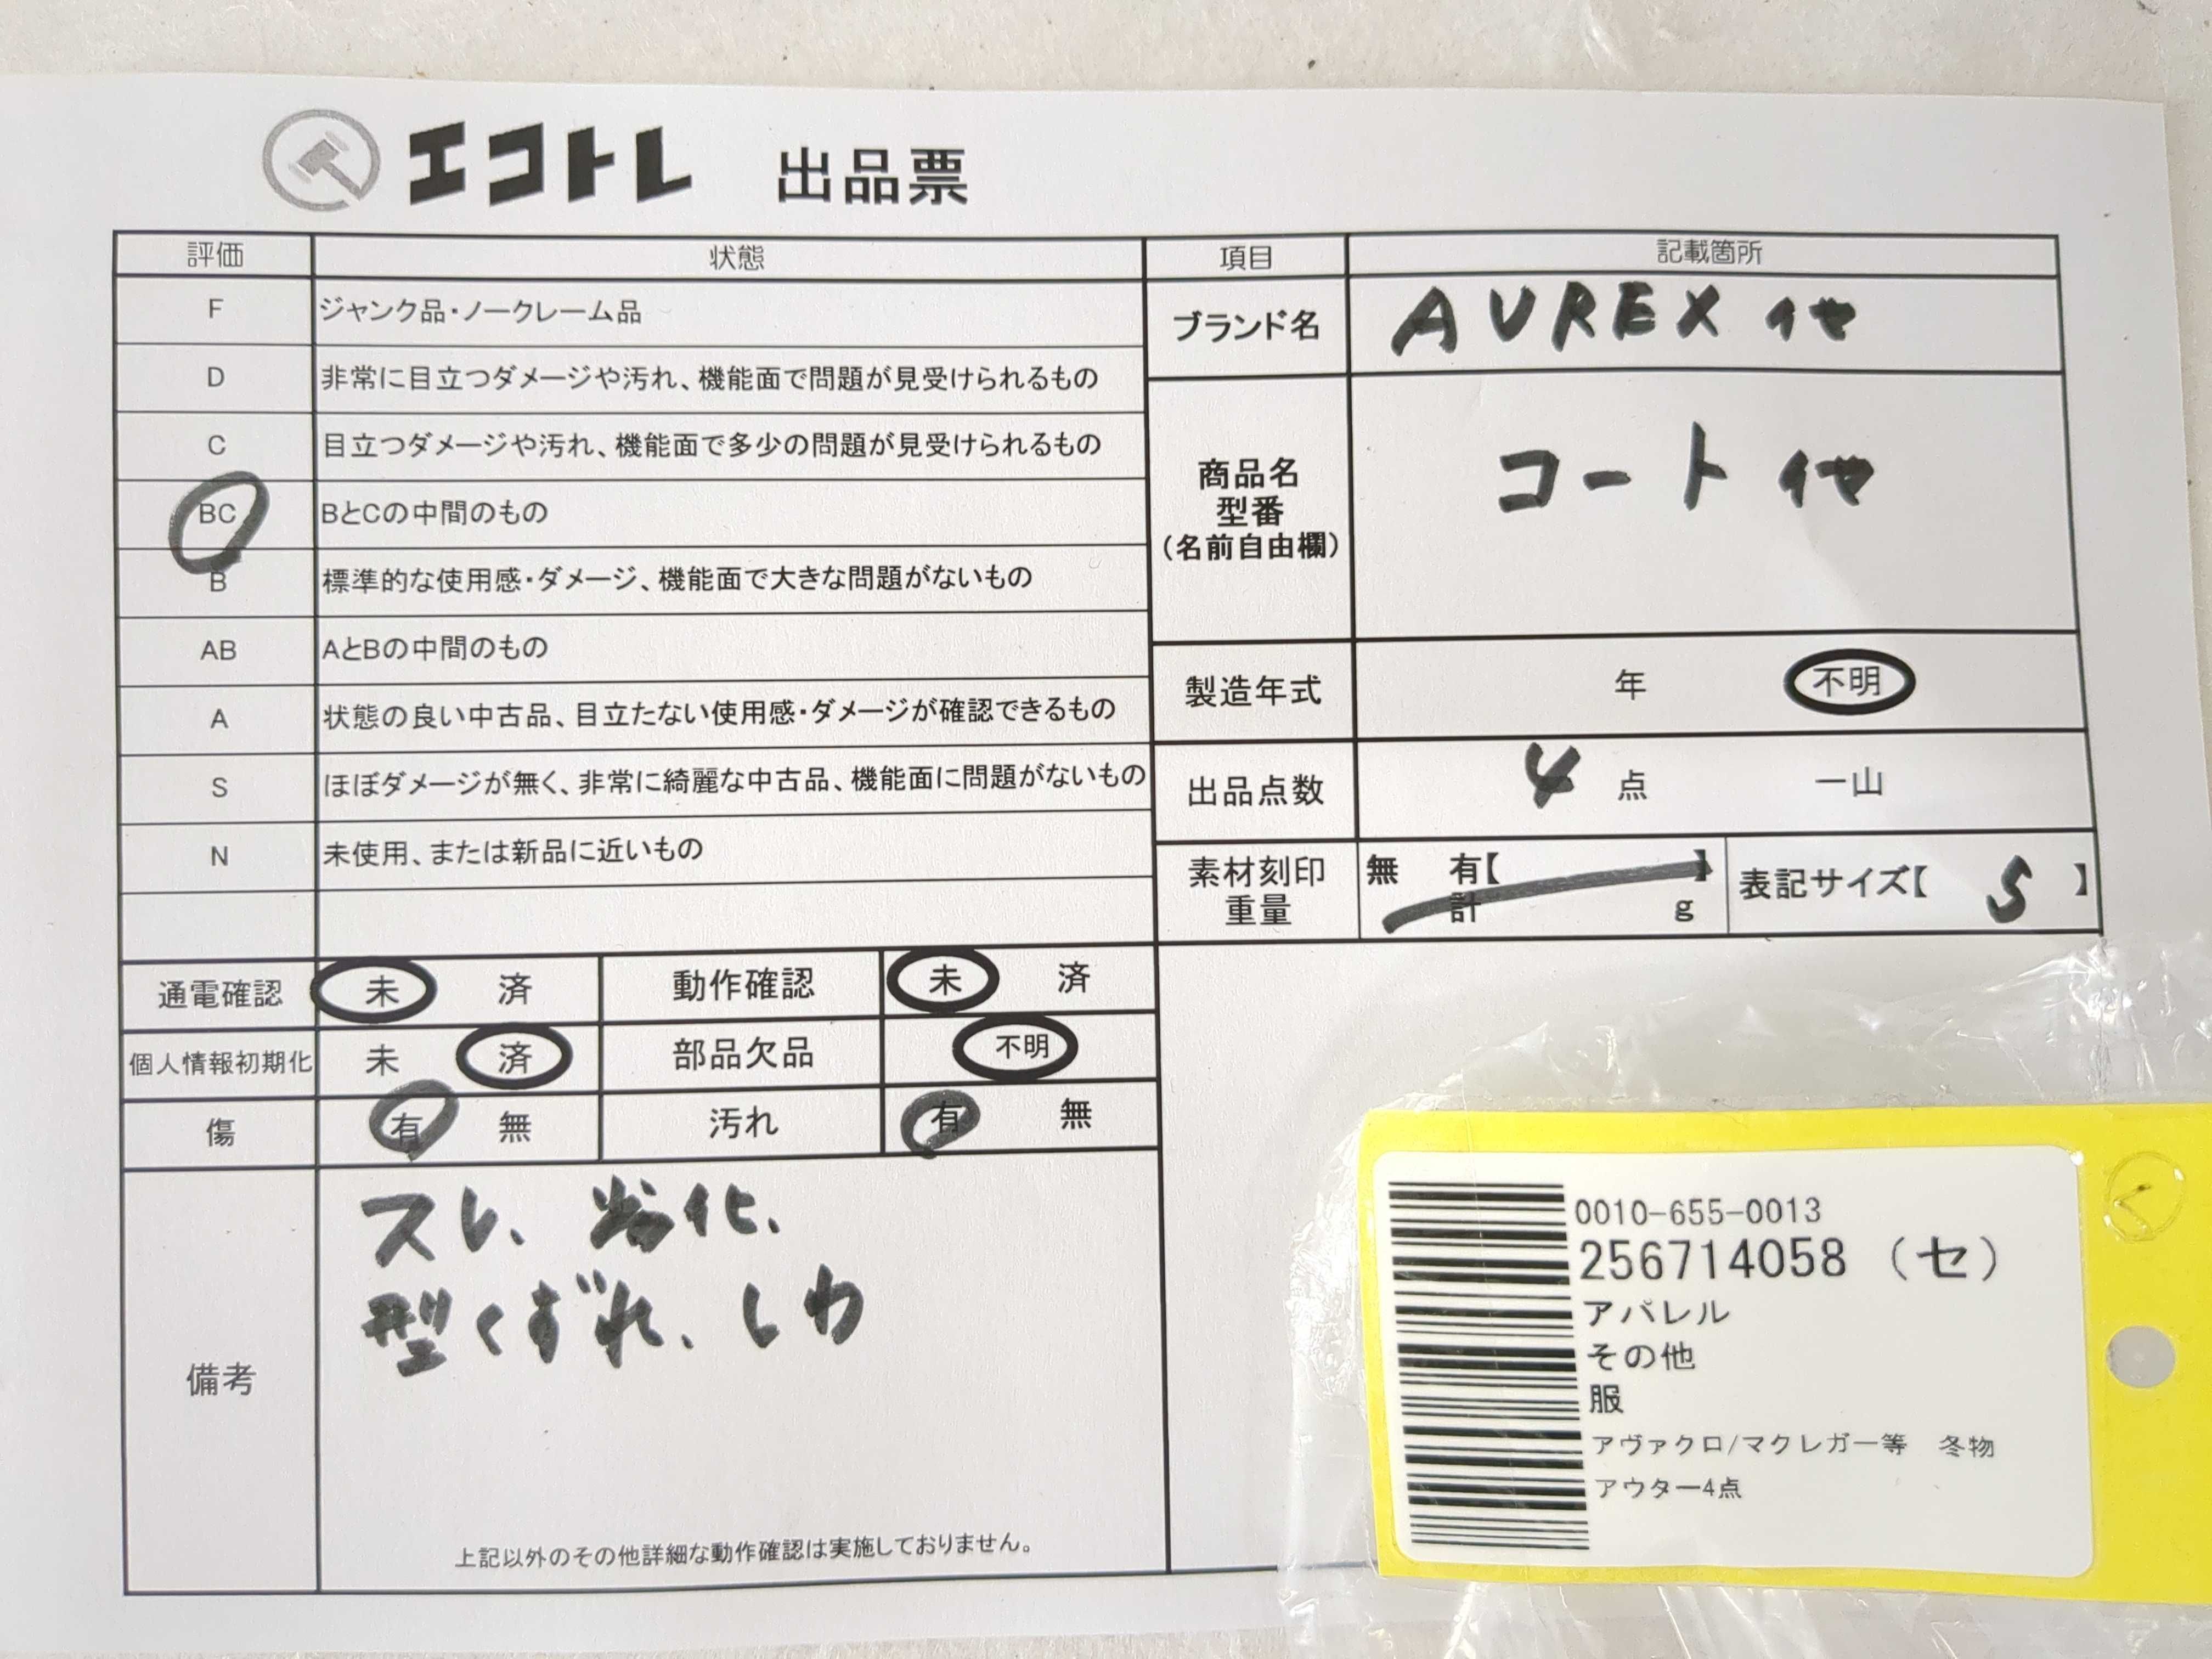 エコトレ 出品票
評価 状態 項目 記載箇所
F ジャンク品・ノークレーム品
D 非常に目立つダメージや汚れ、機能面で問題が見受けられるもの
C 目立つダメージや汚れ、機能面で多少の問題が見受けられるもの
BC BとCの中間のもの
B 標準的な使用感・ダメージ、機能面で大きな問題がないもの
AB AとBの中間のもの
A 状態の良い中古品、目立たない使用感・ダメージが確認できるもの
S ほぼダメージが無く、非常に綺麗な中古品、機能面に問題がないもの
N 未使用、または新品に近いもの
ブランド名 AVREX 他
商品名
型番
(名前自由欄)
コート 他
製造年式 年 不明
出品点数 4 点 一山
素材刻印
重量
無 有【 】
計 g
表記サイズ【 S 】
通電確認 未 済 動作確認 未 済
個人情報初期化 未 済 部品欠品 不明
傷 有 無 汚れ 有 無
備考
スレ、劣化、
型くずれ、しわ
上記以外のその他詳細な動作確認は実施しておりません。
0010-655-0013
256714058 (セ)
アパレル
その他
服
アヴァクロ/マクレガー等 冬物
アウター4点
く